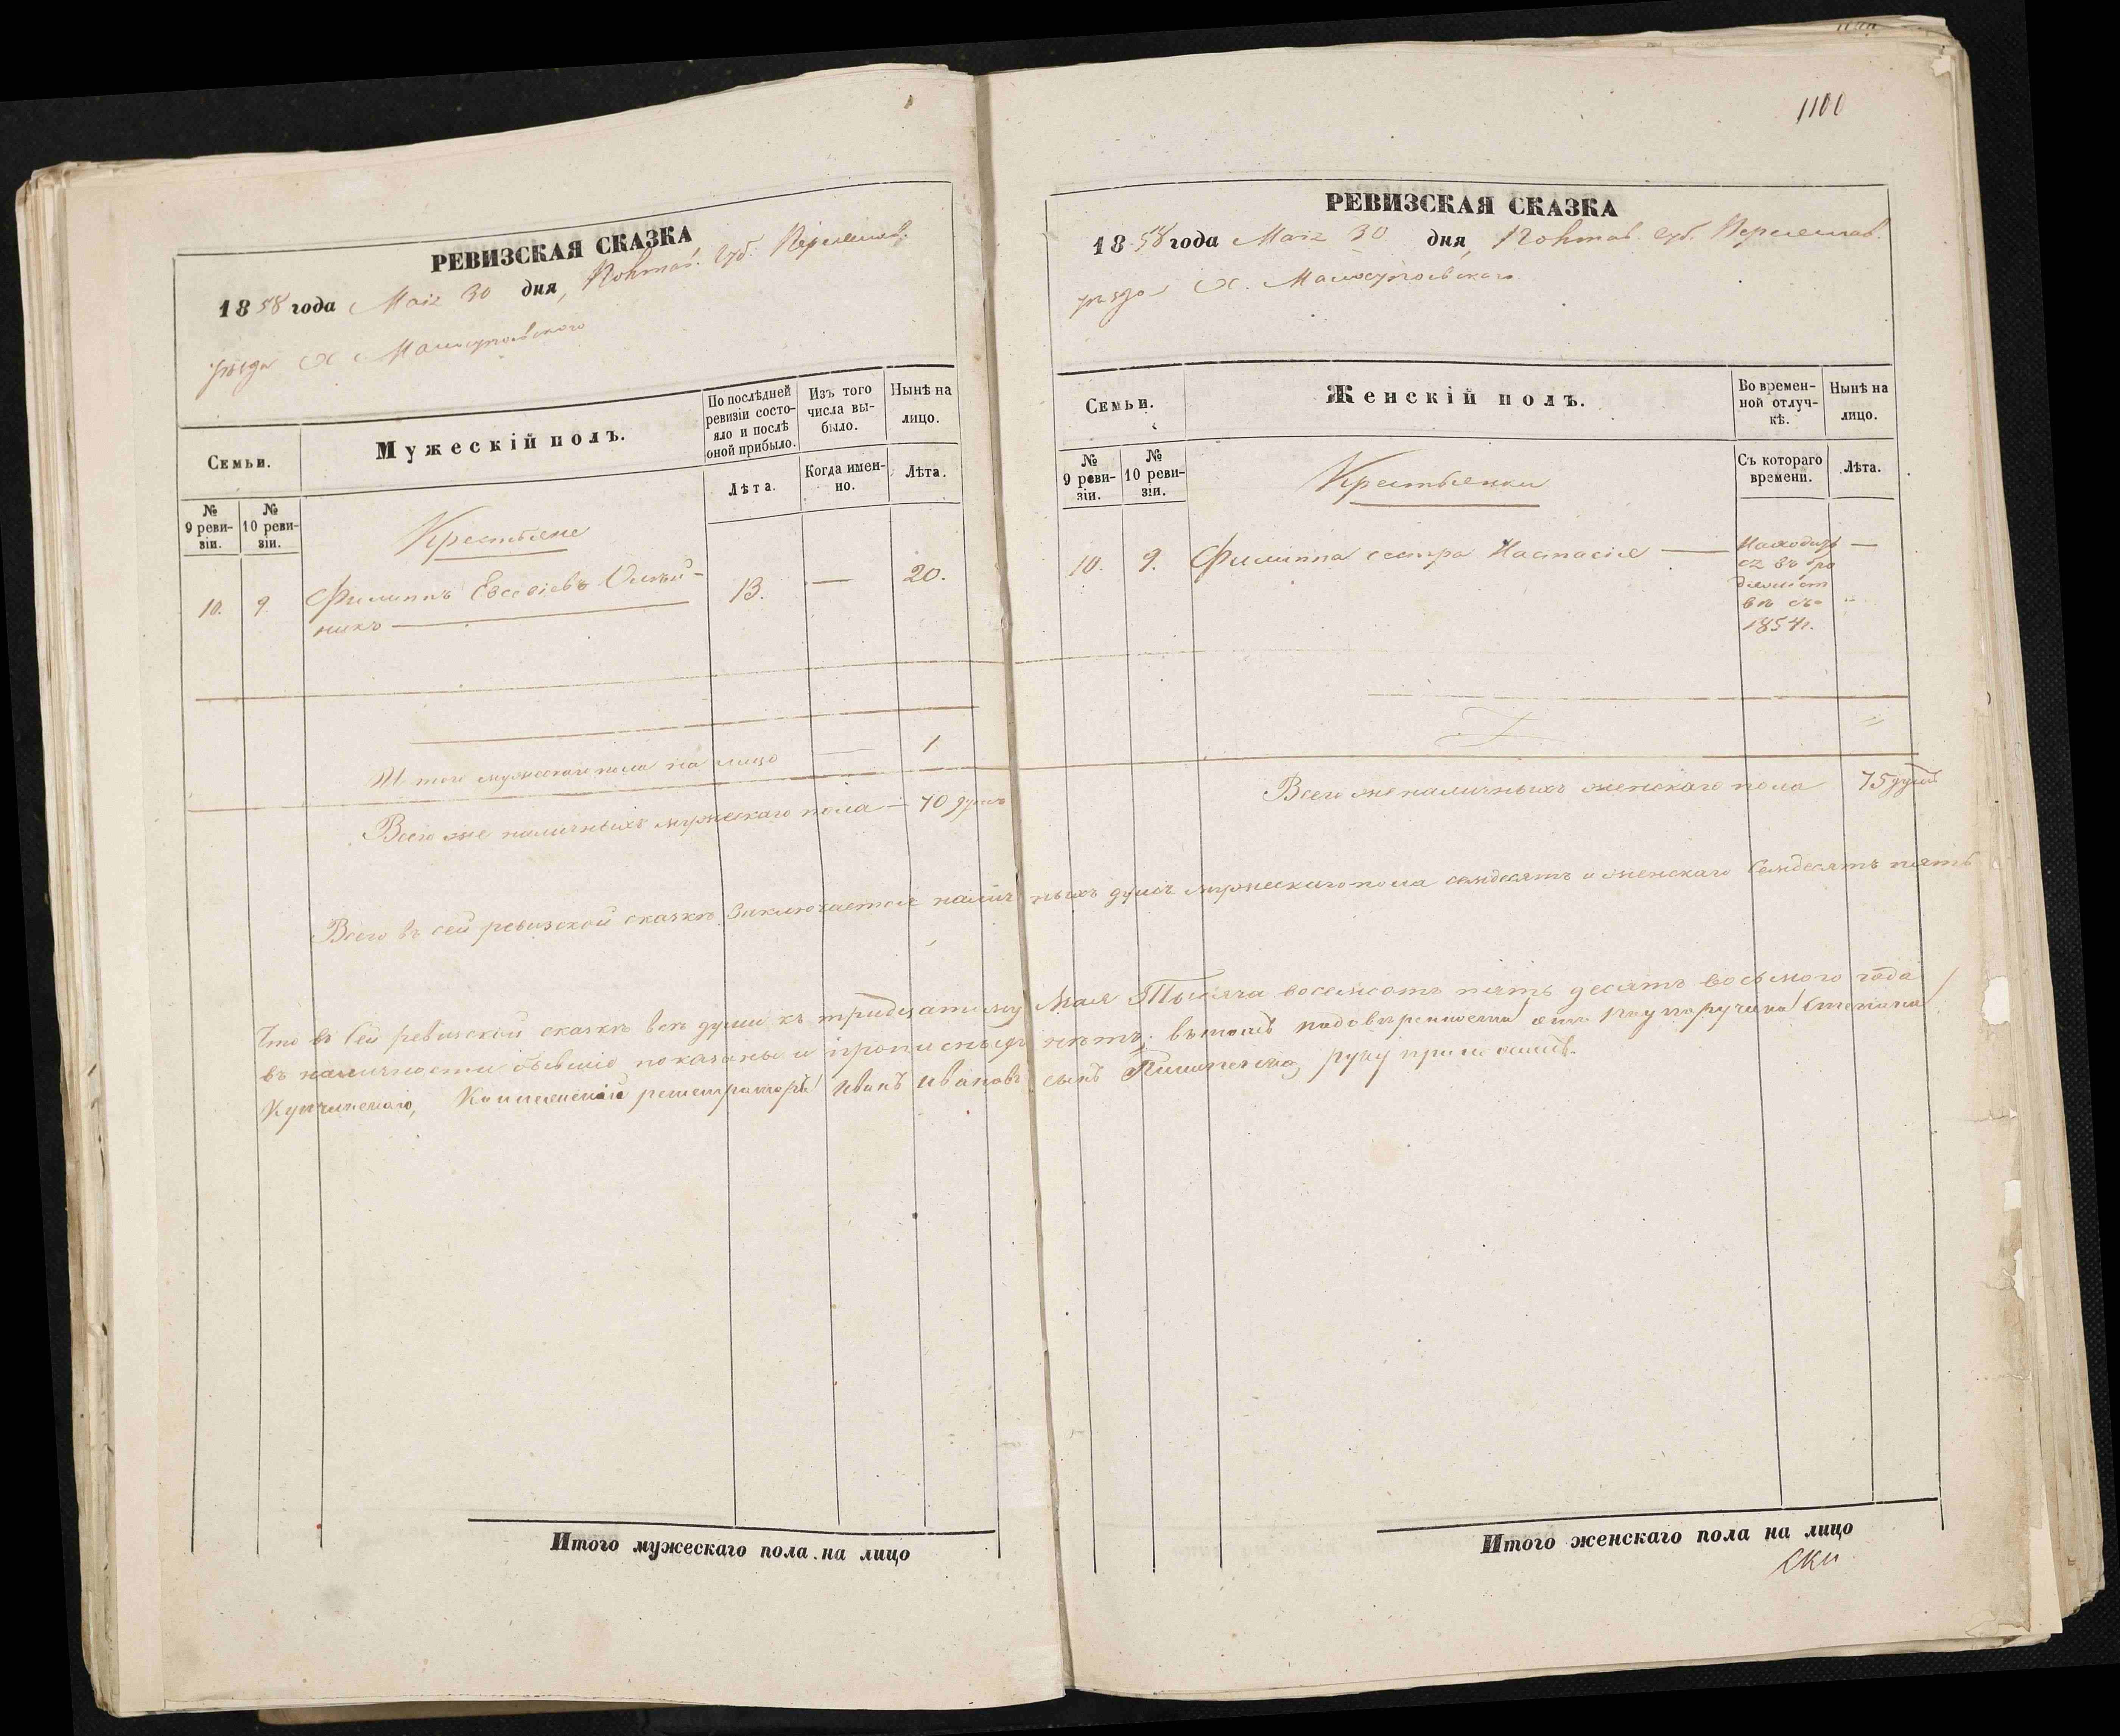 РЕВИЗСКАЯ СКАЗКА
1858 года Маія 30 дня, Полтав. Губ. Переяслав.
уѣзда Х. Малосупоевскаго
Семьи.
Мужескій полъ.
По послѣдней ревизіи состояло и послѣ оной прибыло.
Изъ того числа выбыло.
Нынѣ на лицо.
№ 9 ревизіи.
№ 10 ревизіи.
Лѣта.
Когда именно.
Лѣта.
Крестьяне
10. 9. Филиппъ Евсеіевъ Олѣй- 13. — 20.
никъ
Итого мужескаго пола на лицо — 1
Всего же наличныхъ мужескаго пола — 70 душъ
1100
РЕВИЗСКАЯ СКАЗКА
1858 года Маія 30 дня, Полтав. Губ. Переяслав.
уѣзда Х. Малосупоевскаго
Семьи.
Женскій полъ.
Во временной отлучкѣ.
Нынѣ на лицо.
№ 9 ревизіи.
№ 10 ревизіи.
Съ котораго времени.
Лѣта.
Крестьянки
10. 9. Филиппа сестра Настасія — Находит-
ся въ бро
дяжест
вѣ съ
1854г.
Всего же наличныхъ женскаго пола 75 душъ
Всего въ сей ревизской сказкѣ заключается наличныхъ душъ мужескаго пола семдесятъ и женскаго семдесятъ пять
Что въ сей ревизской сказкѣ всѣ души къ тридцатому Мая Тысяча восемсотъ пять десятъ восьмого года
въ наличности бывшіе показаны и прописныхъ нѣтъ; въ томъ по довѣренности отъ Подпоручика Степана
Коллежскій регистраторъ Иванъ Ивановъ сынъ руку приложилъ.
Итого мужескаго пола на лицо
Итого женскаго пола на лицо
ски